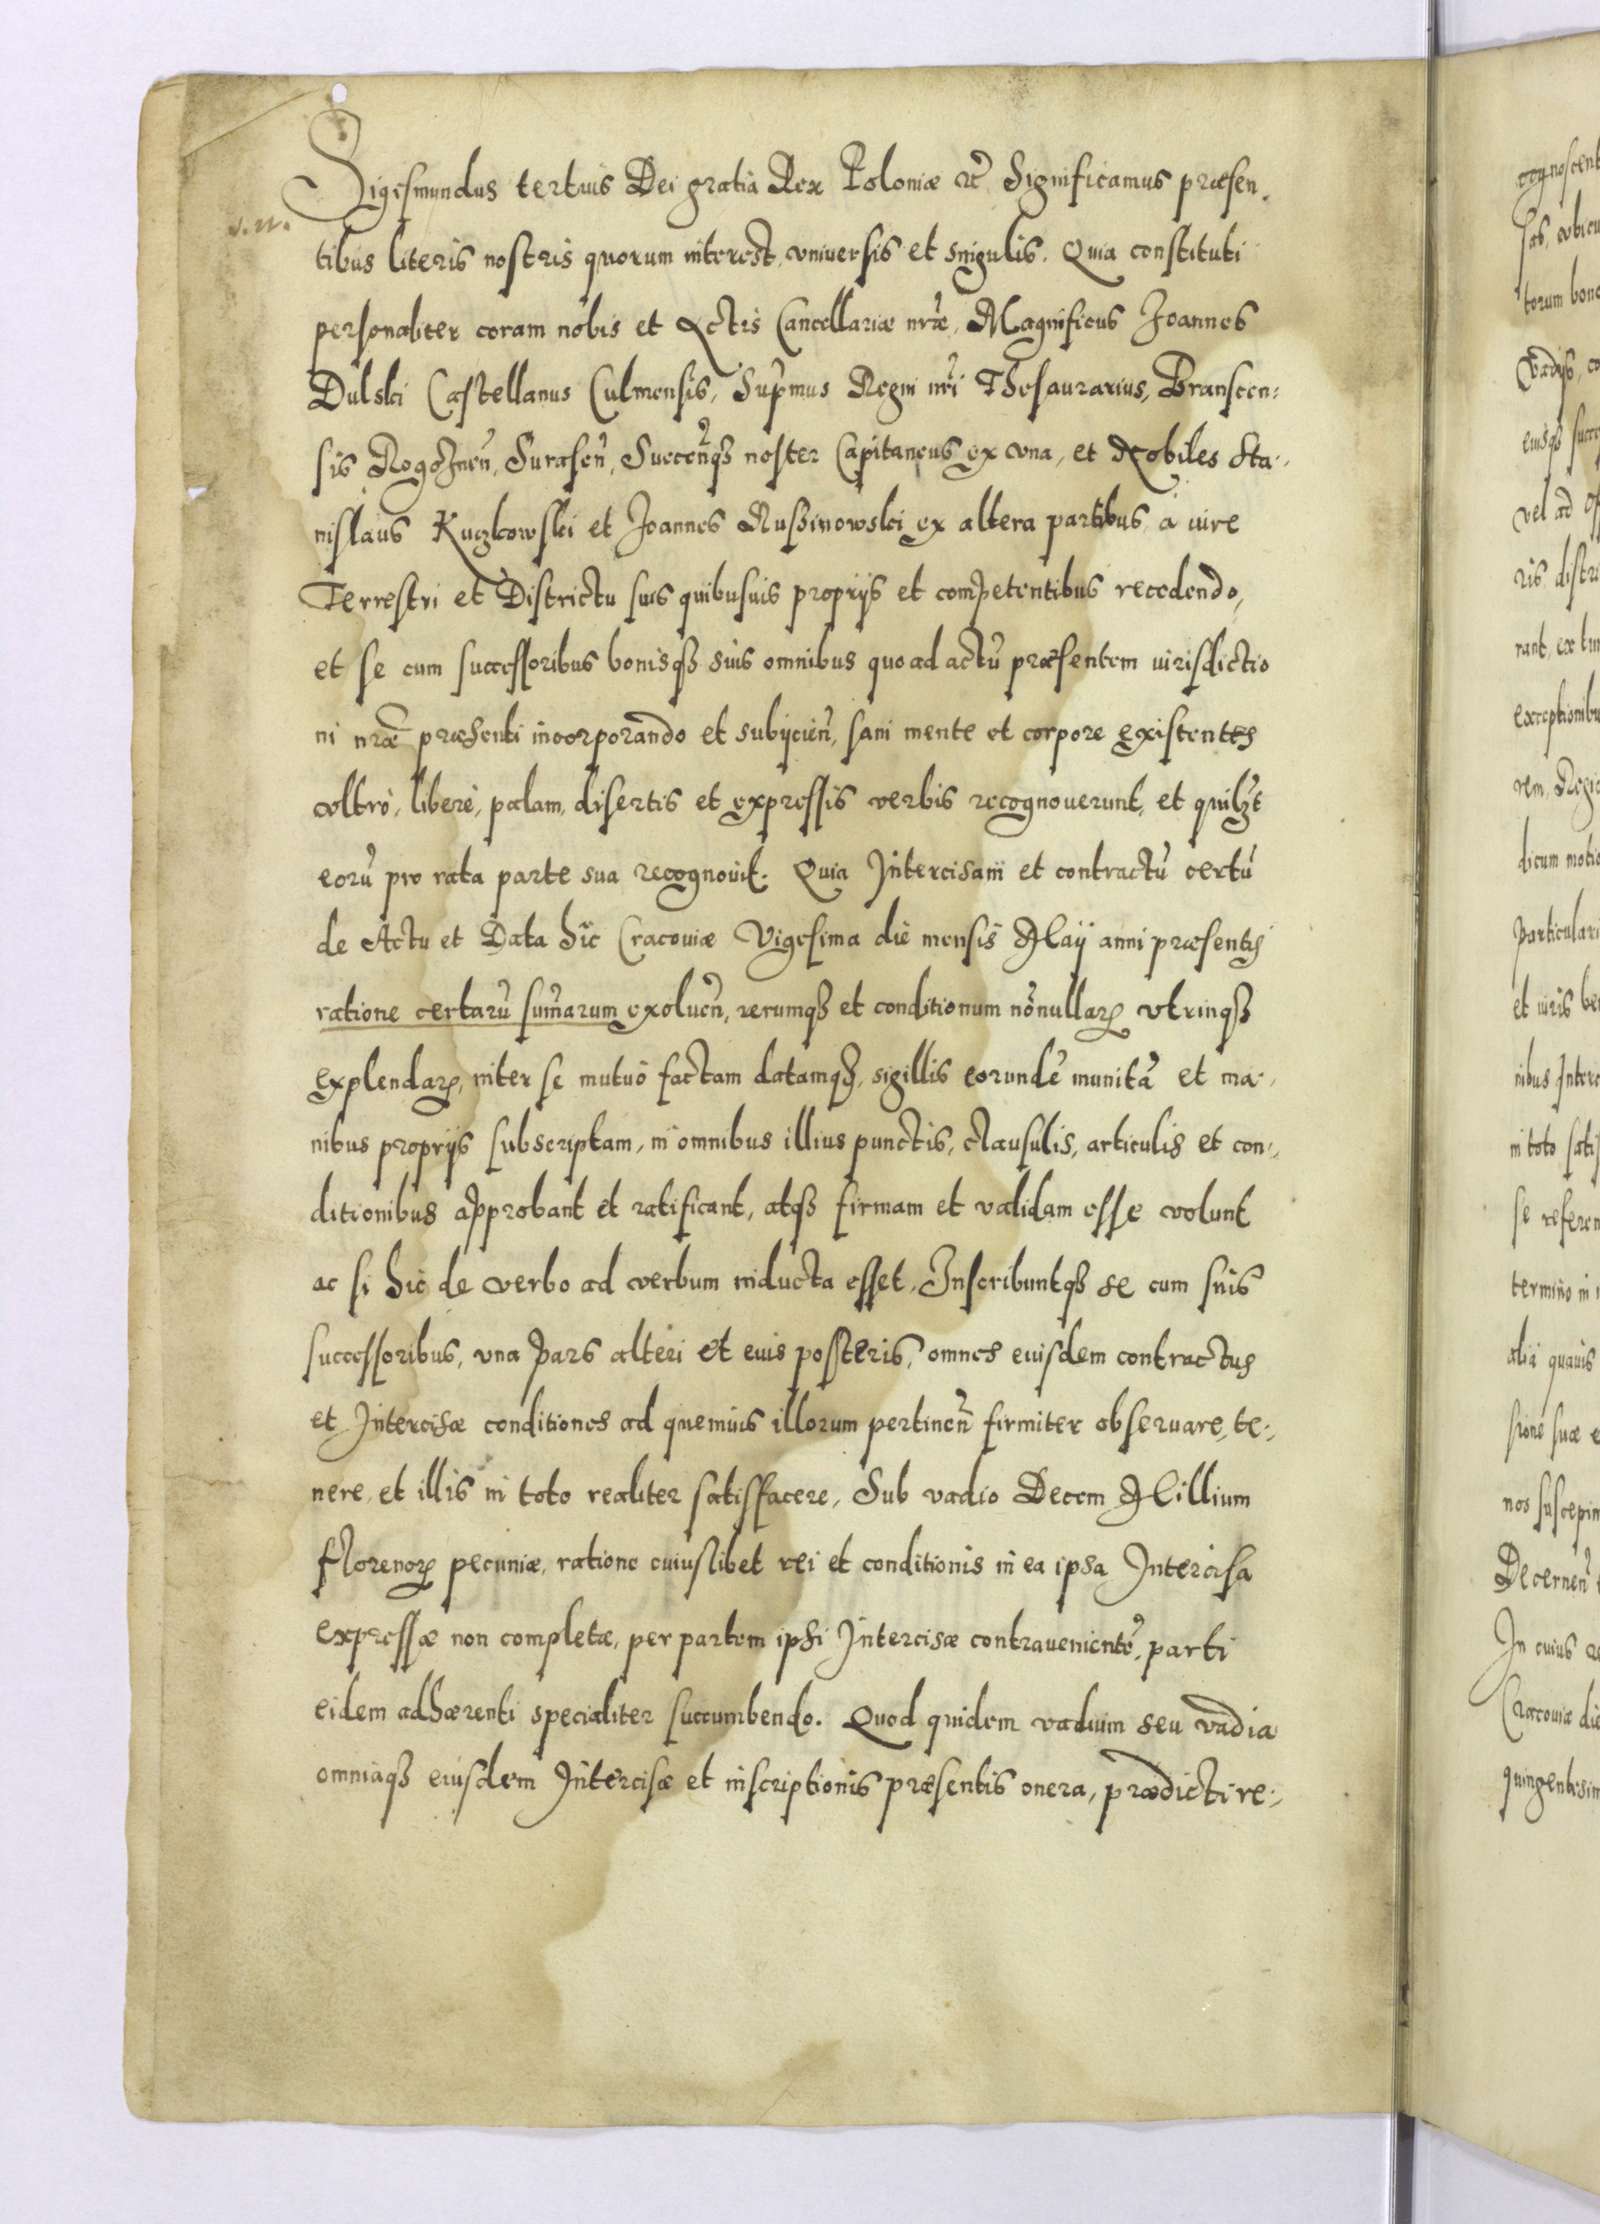 Sigismundus tertius Dei gratia Rex Poloniæ &c̃ Significamus præsen-
s.n.
tibus literis nostris quorum interest, vniuersis et singulis. Quia constituti
personaliter coram nobis et Actis Cancellariæ nr̃æ, Magnificus Joannes
Dulski Castellanus Culmensis, Supr̃mus Regni nr̃i Thesaurarius, Branscen:
sis Rogoznen̄, Surasen̄, Succen̄qȝ noster Capitaneus ex vna, et Nobiles Sta-
nislaus Kuczkowski et Joannes Rußinowski ex altera partibus, à iure
Terrestri et Districtu suis quibusuis proprijs et competentibus recedendo,
et se cum successoribus bonisqȝ suis omnibus quo ad actũ præsentem iurisdictio
ni nr̃æ præsenti incorporando et subijcien̄, sani mente et corpore existentes
vltrò, liberè, palam, disertis et expressis verbis recognouerunt, et quilȝt
eorũ pro rata parte sua recognouit. Quia Intercisam et contractũ certũ
de Actu et Data hic Cracouiæ Vigesima die mensis Maij anni præsentis
ratione certarũ sum̃arum exoluen̄, rerumqȝ et conditionum nõnullarꝝ vtrinqȝ
explendarꝝ, inter se mutuò factam datamqȝ, sigillis eorundẽ munitã et ma-
nibus proprijs subscriptam, in omnibus illius punctis, clausulis, articulis et con-
ditionibus approbant et ratificant, atqȝ firmam et validam esse volunt
ac si hic de verbo ad verbum inducta esset, Inscribuntqȝ se cum suis
successoribus, vna pars alteri et eius posteris, omnes eiusdem contractus
et Intercisæ conditiones ad quemuis illorum pertinen̄ firmiter obseruare, te-
nere, et illis in toto realiter satisfacere, Sub vadio Decem Millium
florenorꝝ pecuniæ, ratione cuiuslibet rei et conditionis in ea ipsa Intercisa
expressæ non completæ, per partem ipsi Intercisæ contrauenientẽ, parti
eidem adhærenti specialiter succumbendo. Quod quidem vadium seu vadia
omniaqȝ eiusdem Intercisæ et inscriptionis præsentis onera, prædicti re-